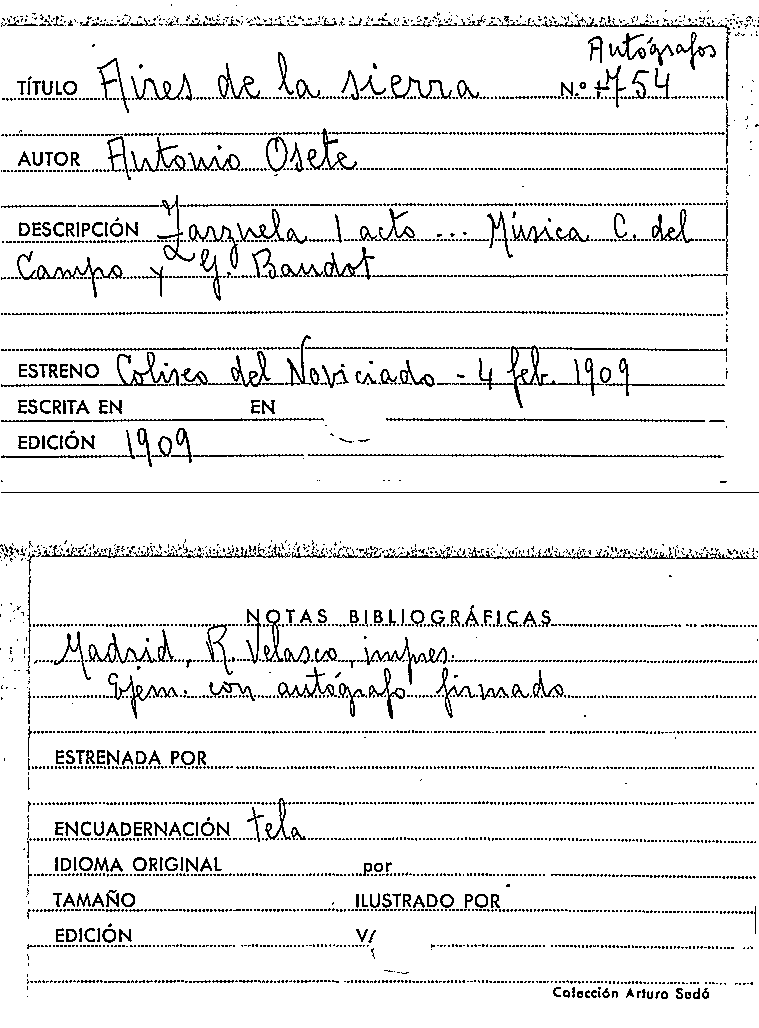 Autógrafos
TÍTULO Aires de la sierra N.º 754
AUTOR Antonio Osete
DESCRIPCIÓN Zarzuela 1 acto ... Música C. del
Campo y G. Baudot
ESTRENO Coliseo del Noviciado - 4 feb. 1909
ESCRITA EN EN
EDICIÓN 1909
NOTAS BIBLIOGRÁFICAS
Madrid, R. Velasco, impres.
Ejem. con autógrafo firmado
ESTRENADA POR
ENCUADERNACIÓN tela
IDIOMA ORIGINAL por
TAMAÑO ILUSTRADO POR
EDICIÓN V/
Colección Arturo Sedó